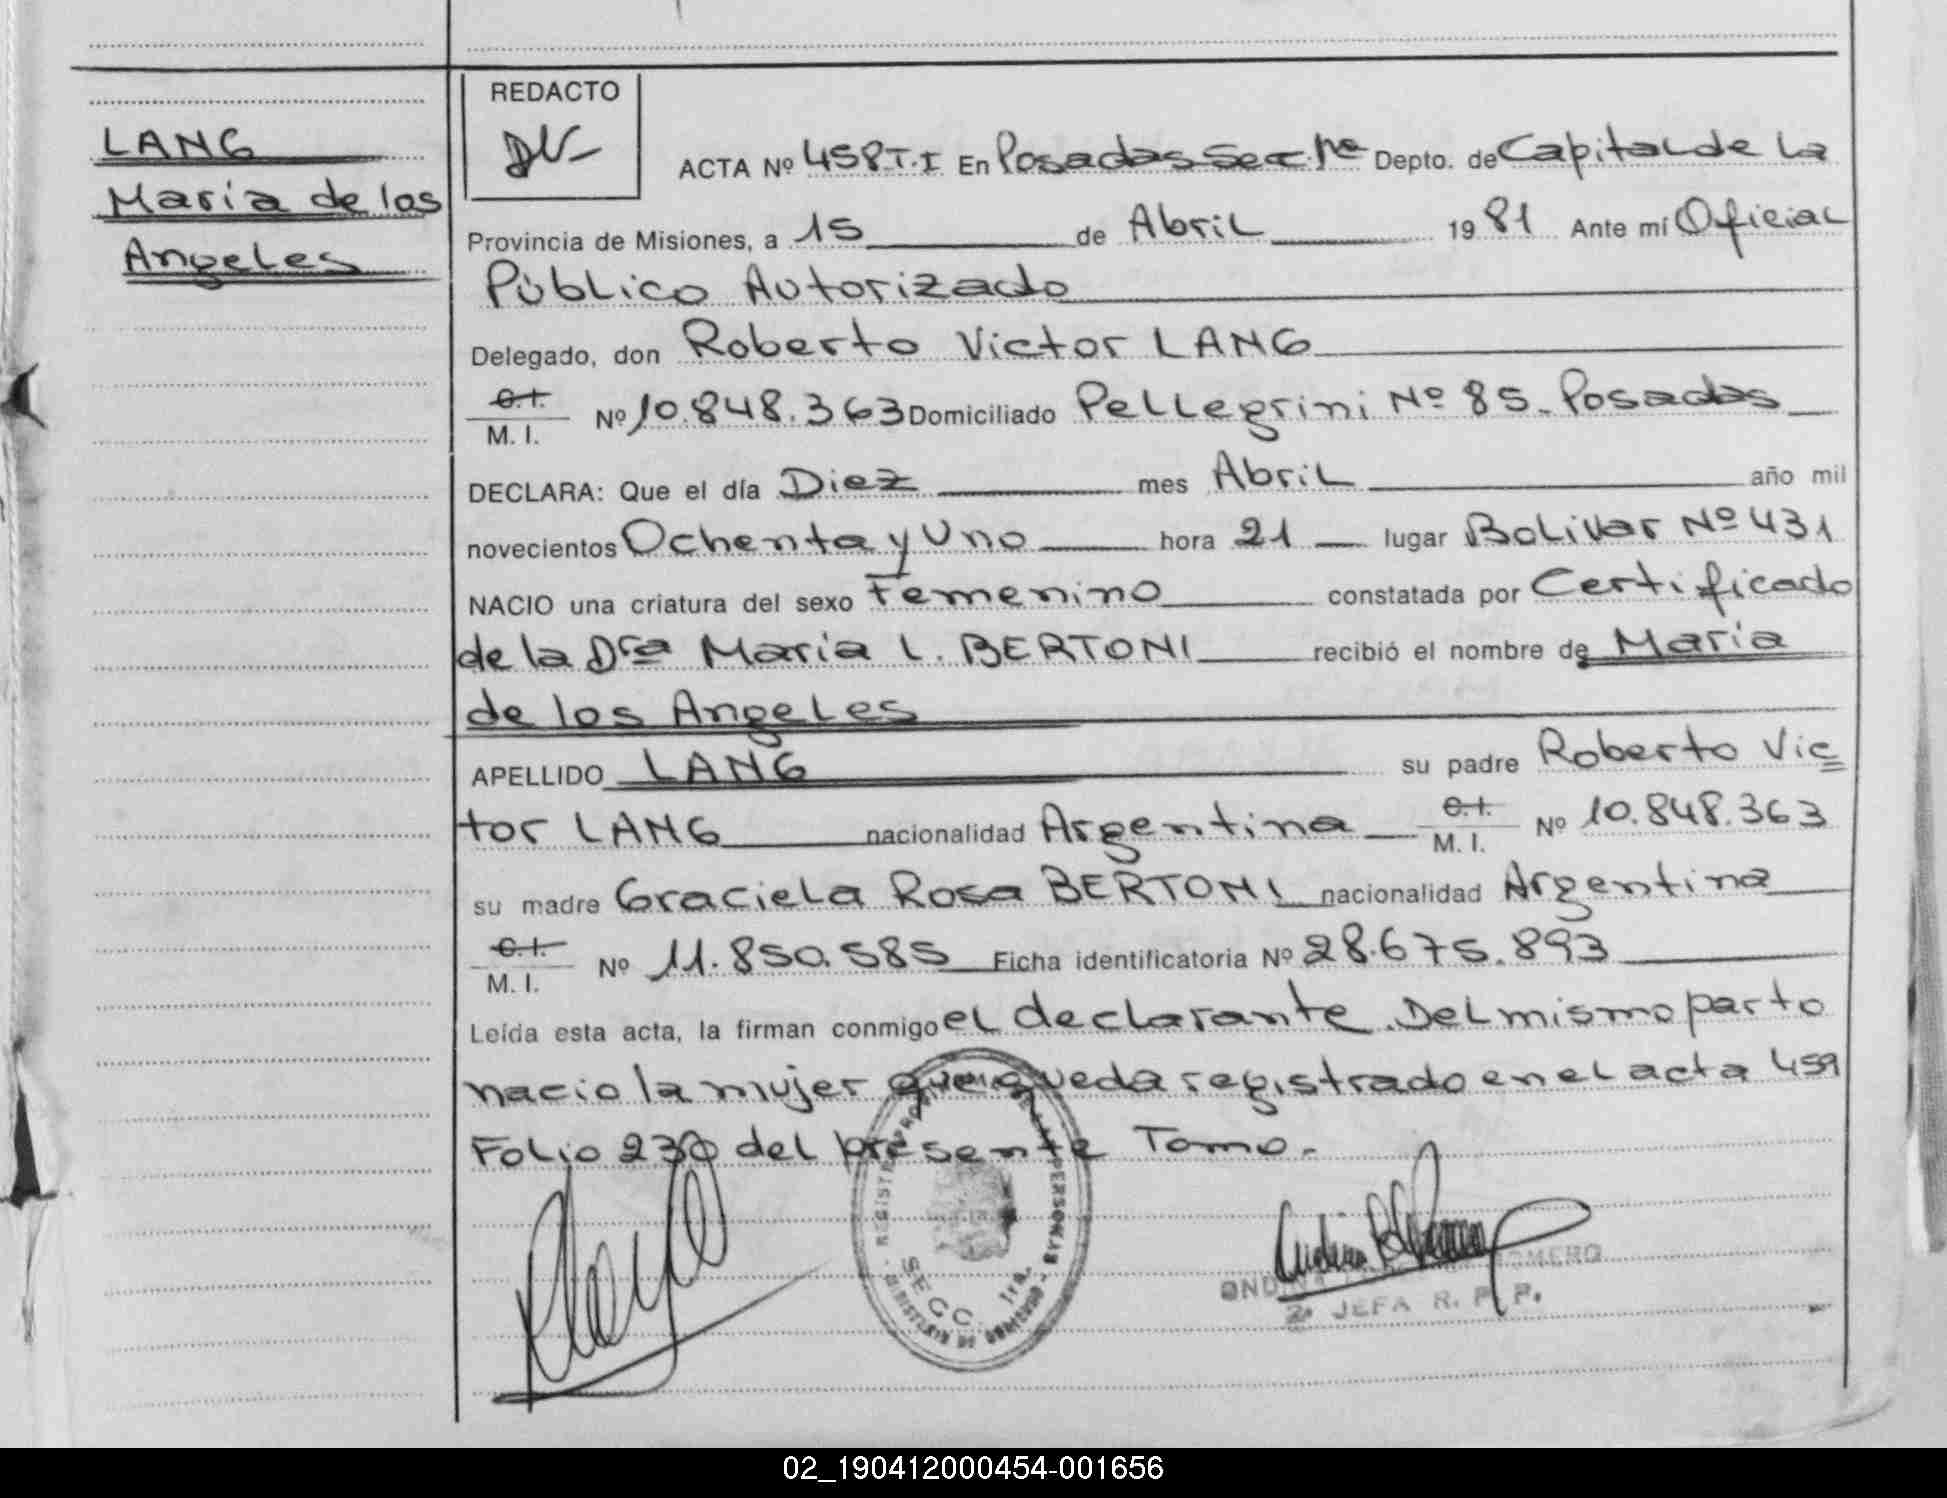 LANG
María de los
Angeles
REDACTO
ACTA Nº 458 T.I En Posadas Sec. 1ra Depto. de Capital de La
Provincia de Misiones, a 15 de Abril 1981 Ante mí Oficial
Público Autorizado
Delegado, don Roberto Victor LANG
C.I.
M. I. Nº 10.848.363 Domiciliado Pellegrini Nº 85. Posadas
DECLARA: Que el día Diez mes Abril año mil
novecientos Ochenta y Uno hora 21 lugar Bolivar Nº 431
NACIO una criatura del sexo Femenino constatada por Certificado
de la Dra María L. BERTONI recibió el nombre de María
de los Angeles
APELLIDO LANG su padre Roberto Vic
tor LANG nacionalidad Argentina C.I. M. I. Nº 10.848.363
su madre Graciela Rosa BERTONI nacionalidad Argentina
C.I.
M. I. Nº 11.850.585 Ficha identificatoria Nº 28.675.893
Leída esta acta, la firman conmigo el declarante. Del mismo parto
nacio la mujer que queda registrado en el acta 459
Folio 230 del presente Tomo.
PERSONAS
SECC. 1ra.
ROMERO
2. JEFA R. P. P.
02_190412000454-001656